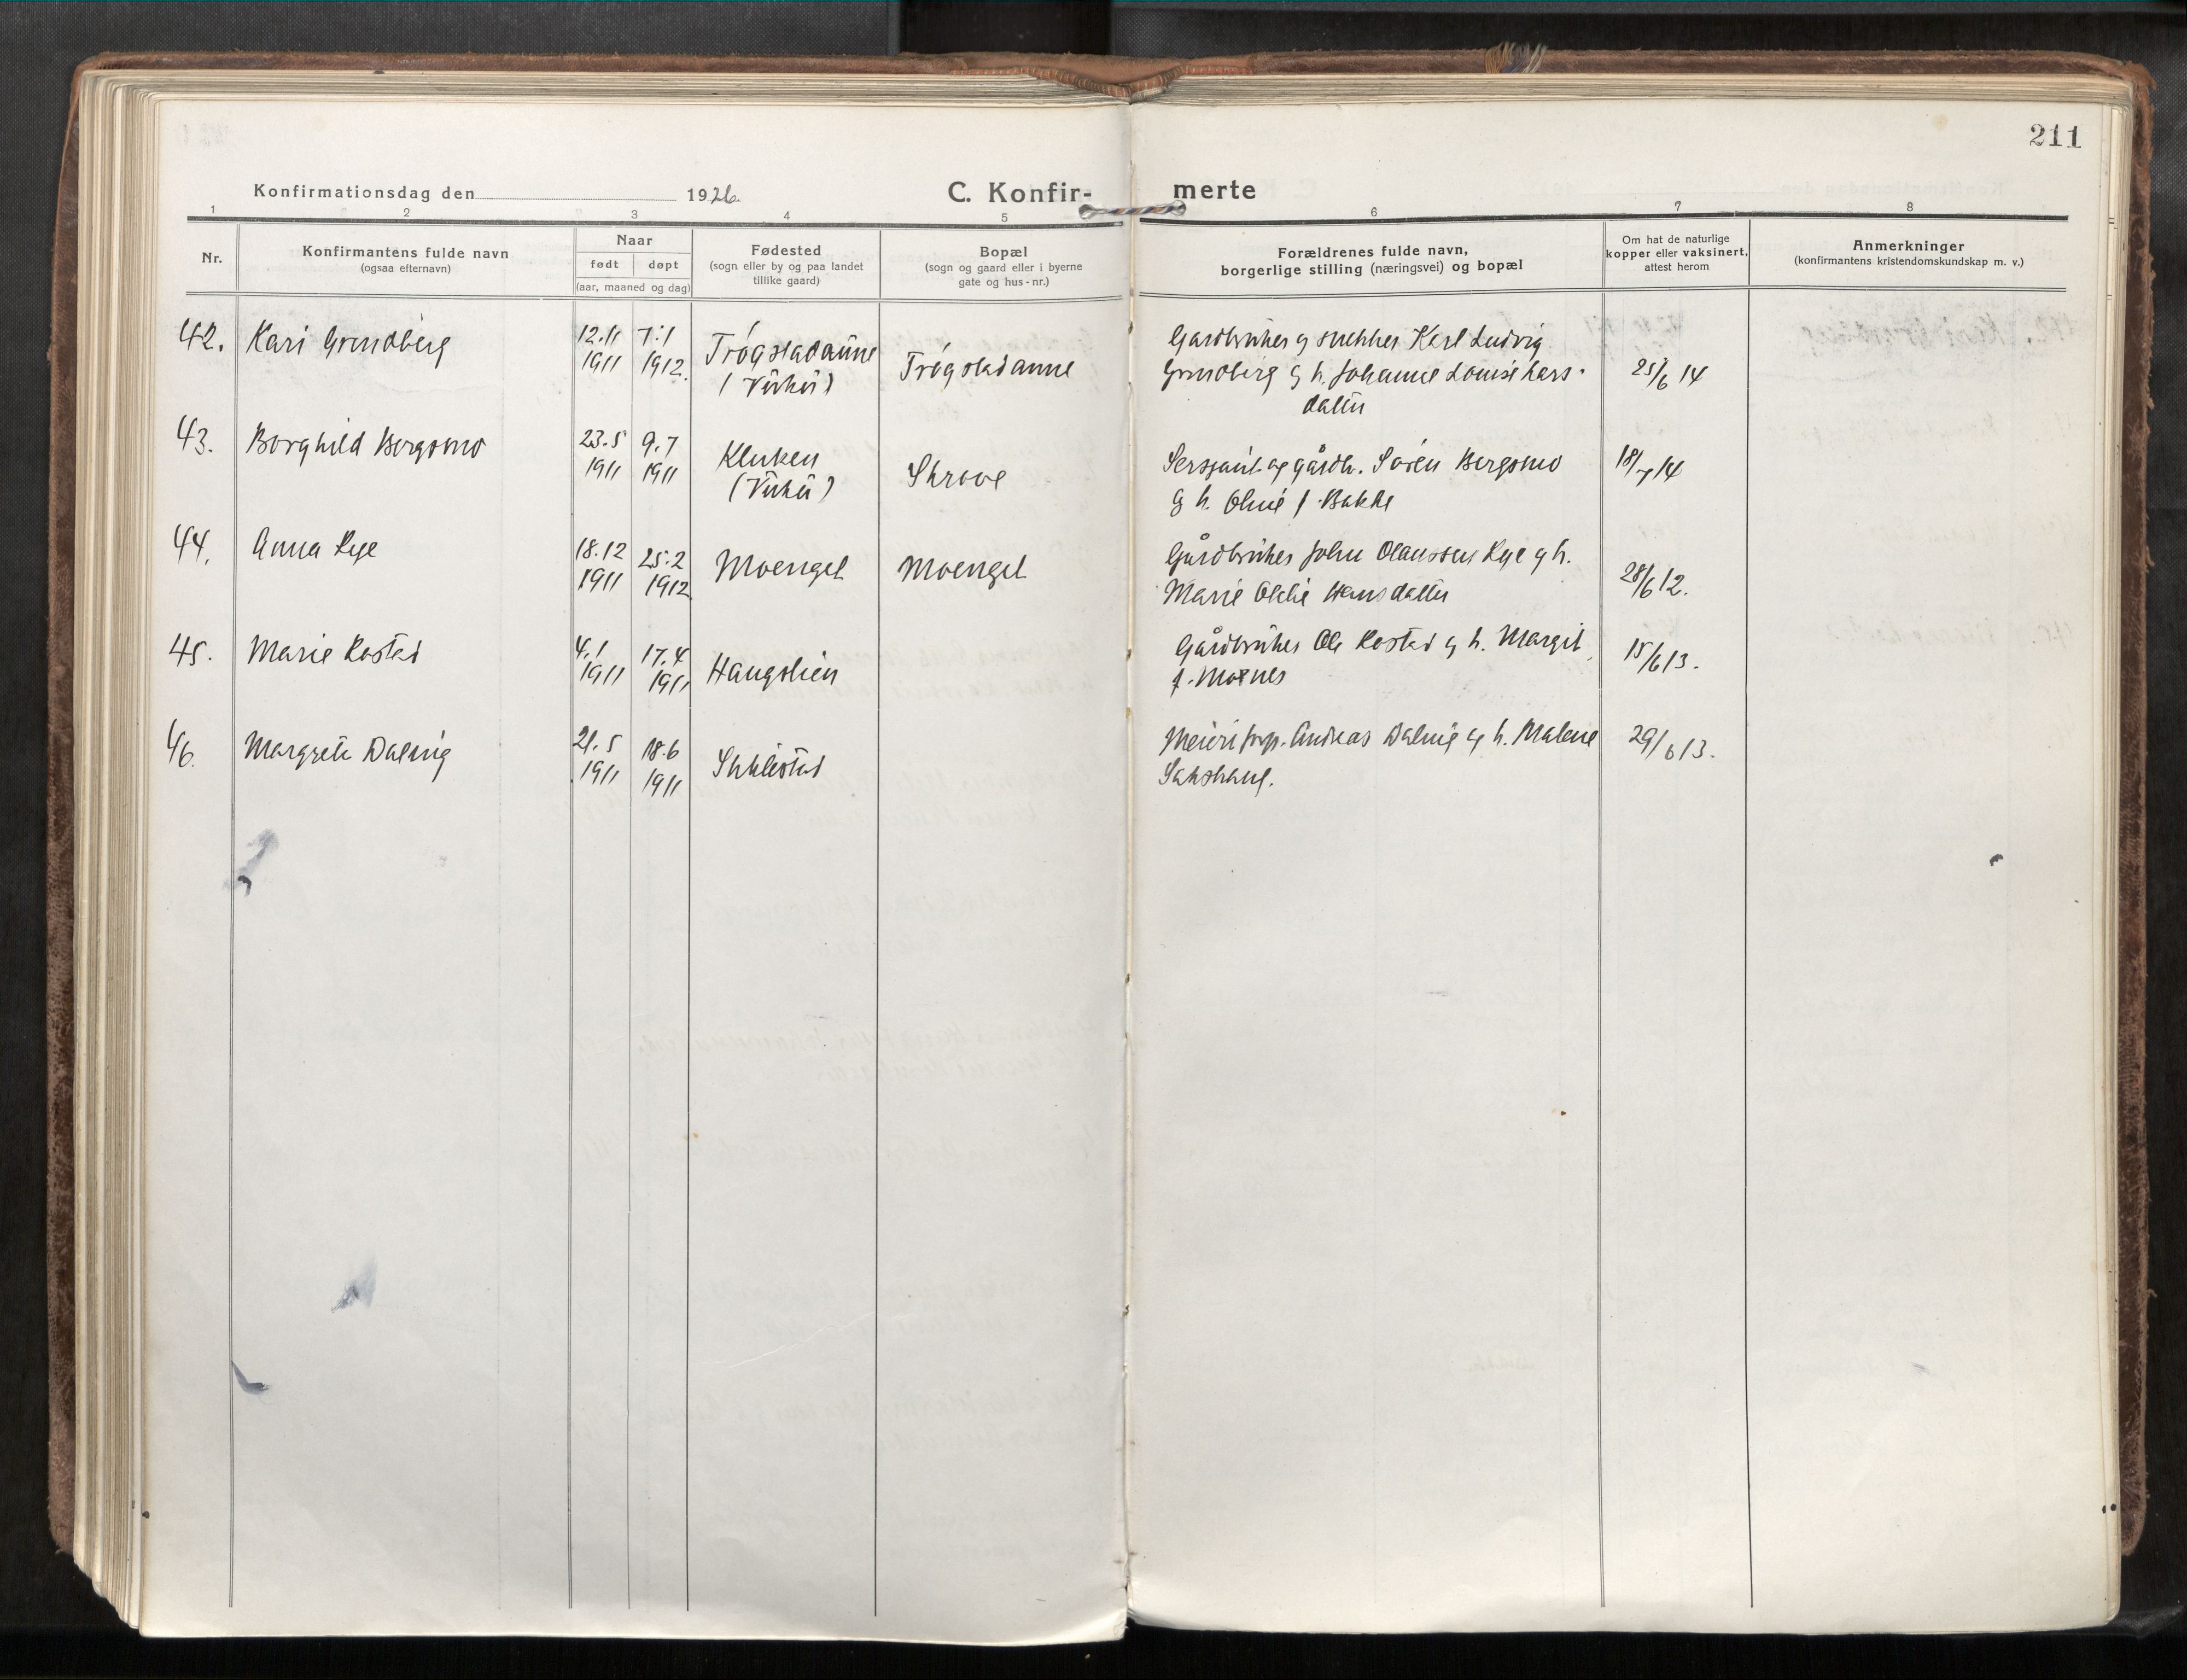 211
Konfirmationsdag den 1926.
C. Konfir-
merte
1 2 3 4 5 6 7 8
Nr.
Konfirmantens fulde navn
(ogsaa efternavn)
Naar
født døpt
(aar, maaned og dag)
Fødested
(sogn eller by og paa landet
tillike gaard)
Bopæl
(sogn og gaard eller i byerne
gate og hus-nr.)
Forældrenes fulde navn,
borgerlige stilling (næringsvei) og bopæl
Om hat de naturlige
kopper eller vaksinert,
attest herom
Anmerkninger
(konfirmantens kristendomskundskap m. v.)
42. Kari Grundberg
12.11
1911
7.1
1912.
Trøgstadaune
Trøgstadaune
Gardbruker og snekker Karl Ludvig
Grundberg og h. Johanne Louise Lars-
datter
25/6 14
43. Borghild Bergsmo
23.5
1911
9.7
1911
Kluken
Skrove
Sersjant og gårdbr. Søren Bergsmo
og h. Oline f. Bakke
18/7 14
44. Anna Rye
18.12
1911
25.2
1912
Moenget
Moenget
Gårdbruker John Olaussen Rye og h.
Marie Hansdatter
28/6 12.
45. Marie Rostad
4.1
1911
17.4
1911
Haugslien
Gårdbruker Ole Rostad og h. Margit
f. Moenes
15/6 13.
46. Margrete Dalmig
21.5
1911
18.6
1911
Stiklestad
Andreas Dalmig og h. Malene
Sakshaug.
29/6 13.